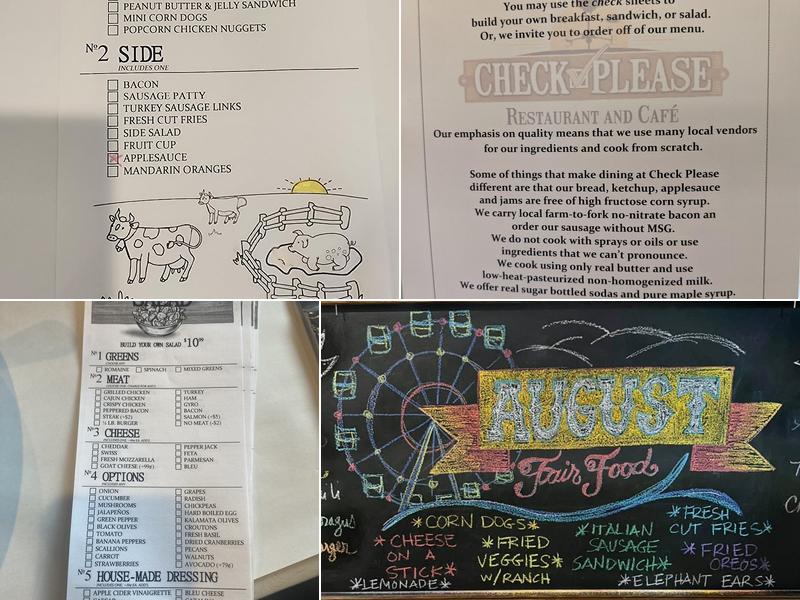 PEANUT BUTTER & JELLY SANDWICH
MINI CORN DOGS
POPCORN CHICKEN NUGGETS
Nº2 SIDE
INCLUDES ONE
BACON
SAUSAGE PATTY
TURKEY SAUSAGE LINKS
FRESH CUT FRIES
SIDE SALAD
FRUIT CUP
APPLESAUCE
MANDARIN ORANGES
You may use the check sheets to
build your own breakfast, sandwich, or salad.
Or, we invite you to order off of our menu.
CHECK PLEASE
RESTAURANT AND CAFÉ
Our emphasis on quality means that we use many local vendors
for our ingredients and cook from scratch.
Some of things that make dining at Check Please
different are that our bread, ketchup, applesauce
and jams are free of high fructose corn syrup.
We carry local farm-to-fork no-nitrate bacon an
order our sausage without MSG.
We do not cook with sprays or oils or use
ingredients that we can't pronounce.
We cook using only real butter and use
low-heat-pasteurized non-homogenized milk.
We offer real sugar bottled sodas and pure maple syrup.
SALAD
BUILD YOUR OWN SALAD $10.99
Nº1 GREENS
ROMAINE SPINACH MIXED GREENS
Nº2 MEAT
GRILLED CHICKEN
CAJUN CHICKEN
CRISPY CHICKEN
PEPPERED BACON
STEAK (+$2)
½ LB. BURGER
TURKEY
HAM
GYRO
BACON
SALMON (+$5)
NO MEAT (-$2)
Nº3 CHEESE
CHEDDAR
SWISS
FRESH MOZZARELLA
GOAT CHEESE (+99¢)
PEPPER JACK
FETA
PARMESAN
BLEU
Nº4 OPTIONS
ONION
CUCUMBER
MUSHROOMS
JALAPEÑOS
GREEN PEPPER
BLACK OLIVES
TOMATO
BANANA PEPPERS
SCALLIONS
CARROT
STRAWBERRIES
GRAPES
RADISH
CHICKPEAS
HARD BOILED EGG
KALAMATA OLIVES
CROUTONS
FRESH BASIL
DRIED CRANBERRIES
PECANS
WALNUTS
AVOCADO (+75¢)
Nº5 HOUSE-MADE DRESSING
APPLE CIDER VINAIGRETTE
BLEU CHEESE
AUGUST
Fair Food
*CORN DOGS*
*CHEESE
ON A
STICK*
*LEMONADE*
*FRIED
VEGGIES*
W/RANCH
*ITALIAN
SAUSAGE
SANDWICH*
*FRESH
CUT FRIES*
*FRIED
OREOS*
*ELEPHANT EARS*